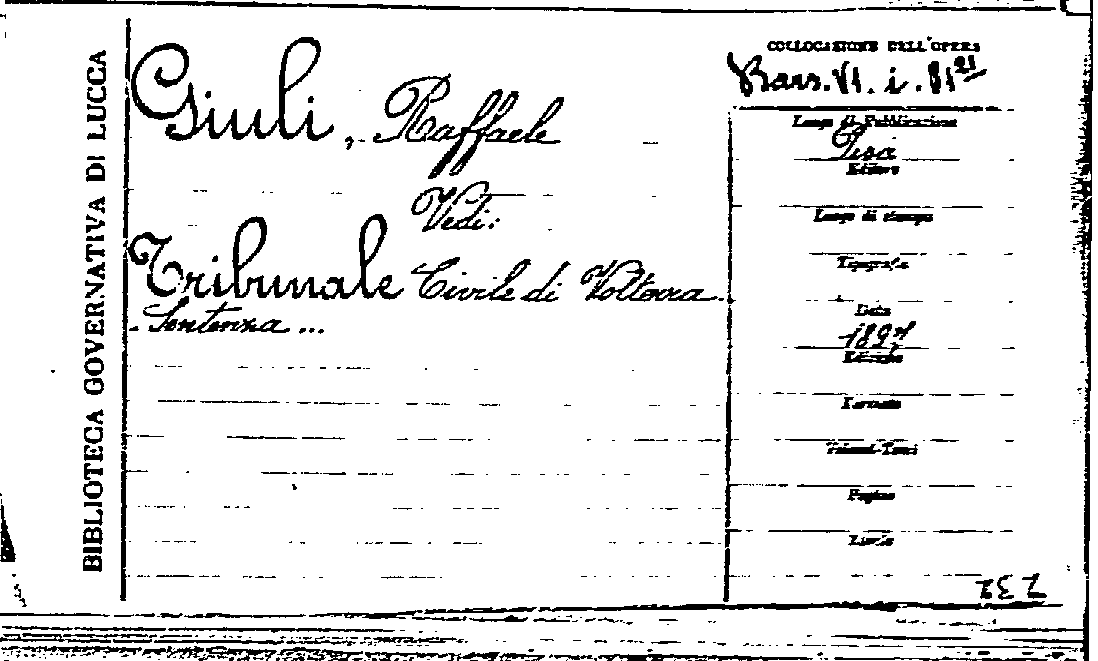 BIBLIOTECA GOVERNATIVA DI LUCCA
Giuli, Raffaele
Vedi:
Tribunale Civile di Volterra.
Sentenza ...
COLLOCAZIONE DELL'OPERA
Bars. VI. i. 81²¹
Luogo di Pubblicazione
Pisa
Editore
Luogo di stampa
Tipografia
Data
1897
Edizione
Formato
Volumi-Tomi
Pagine